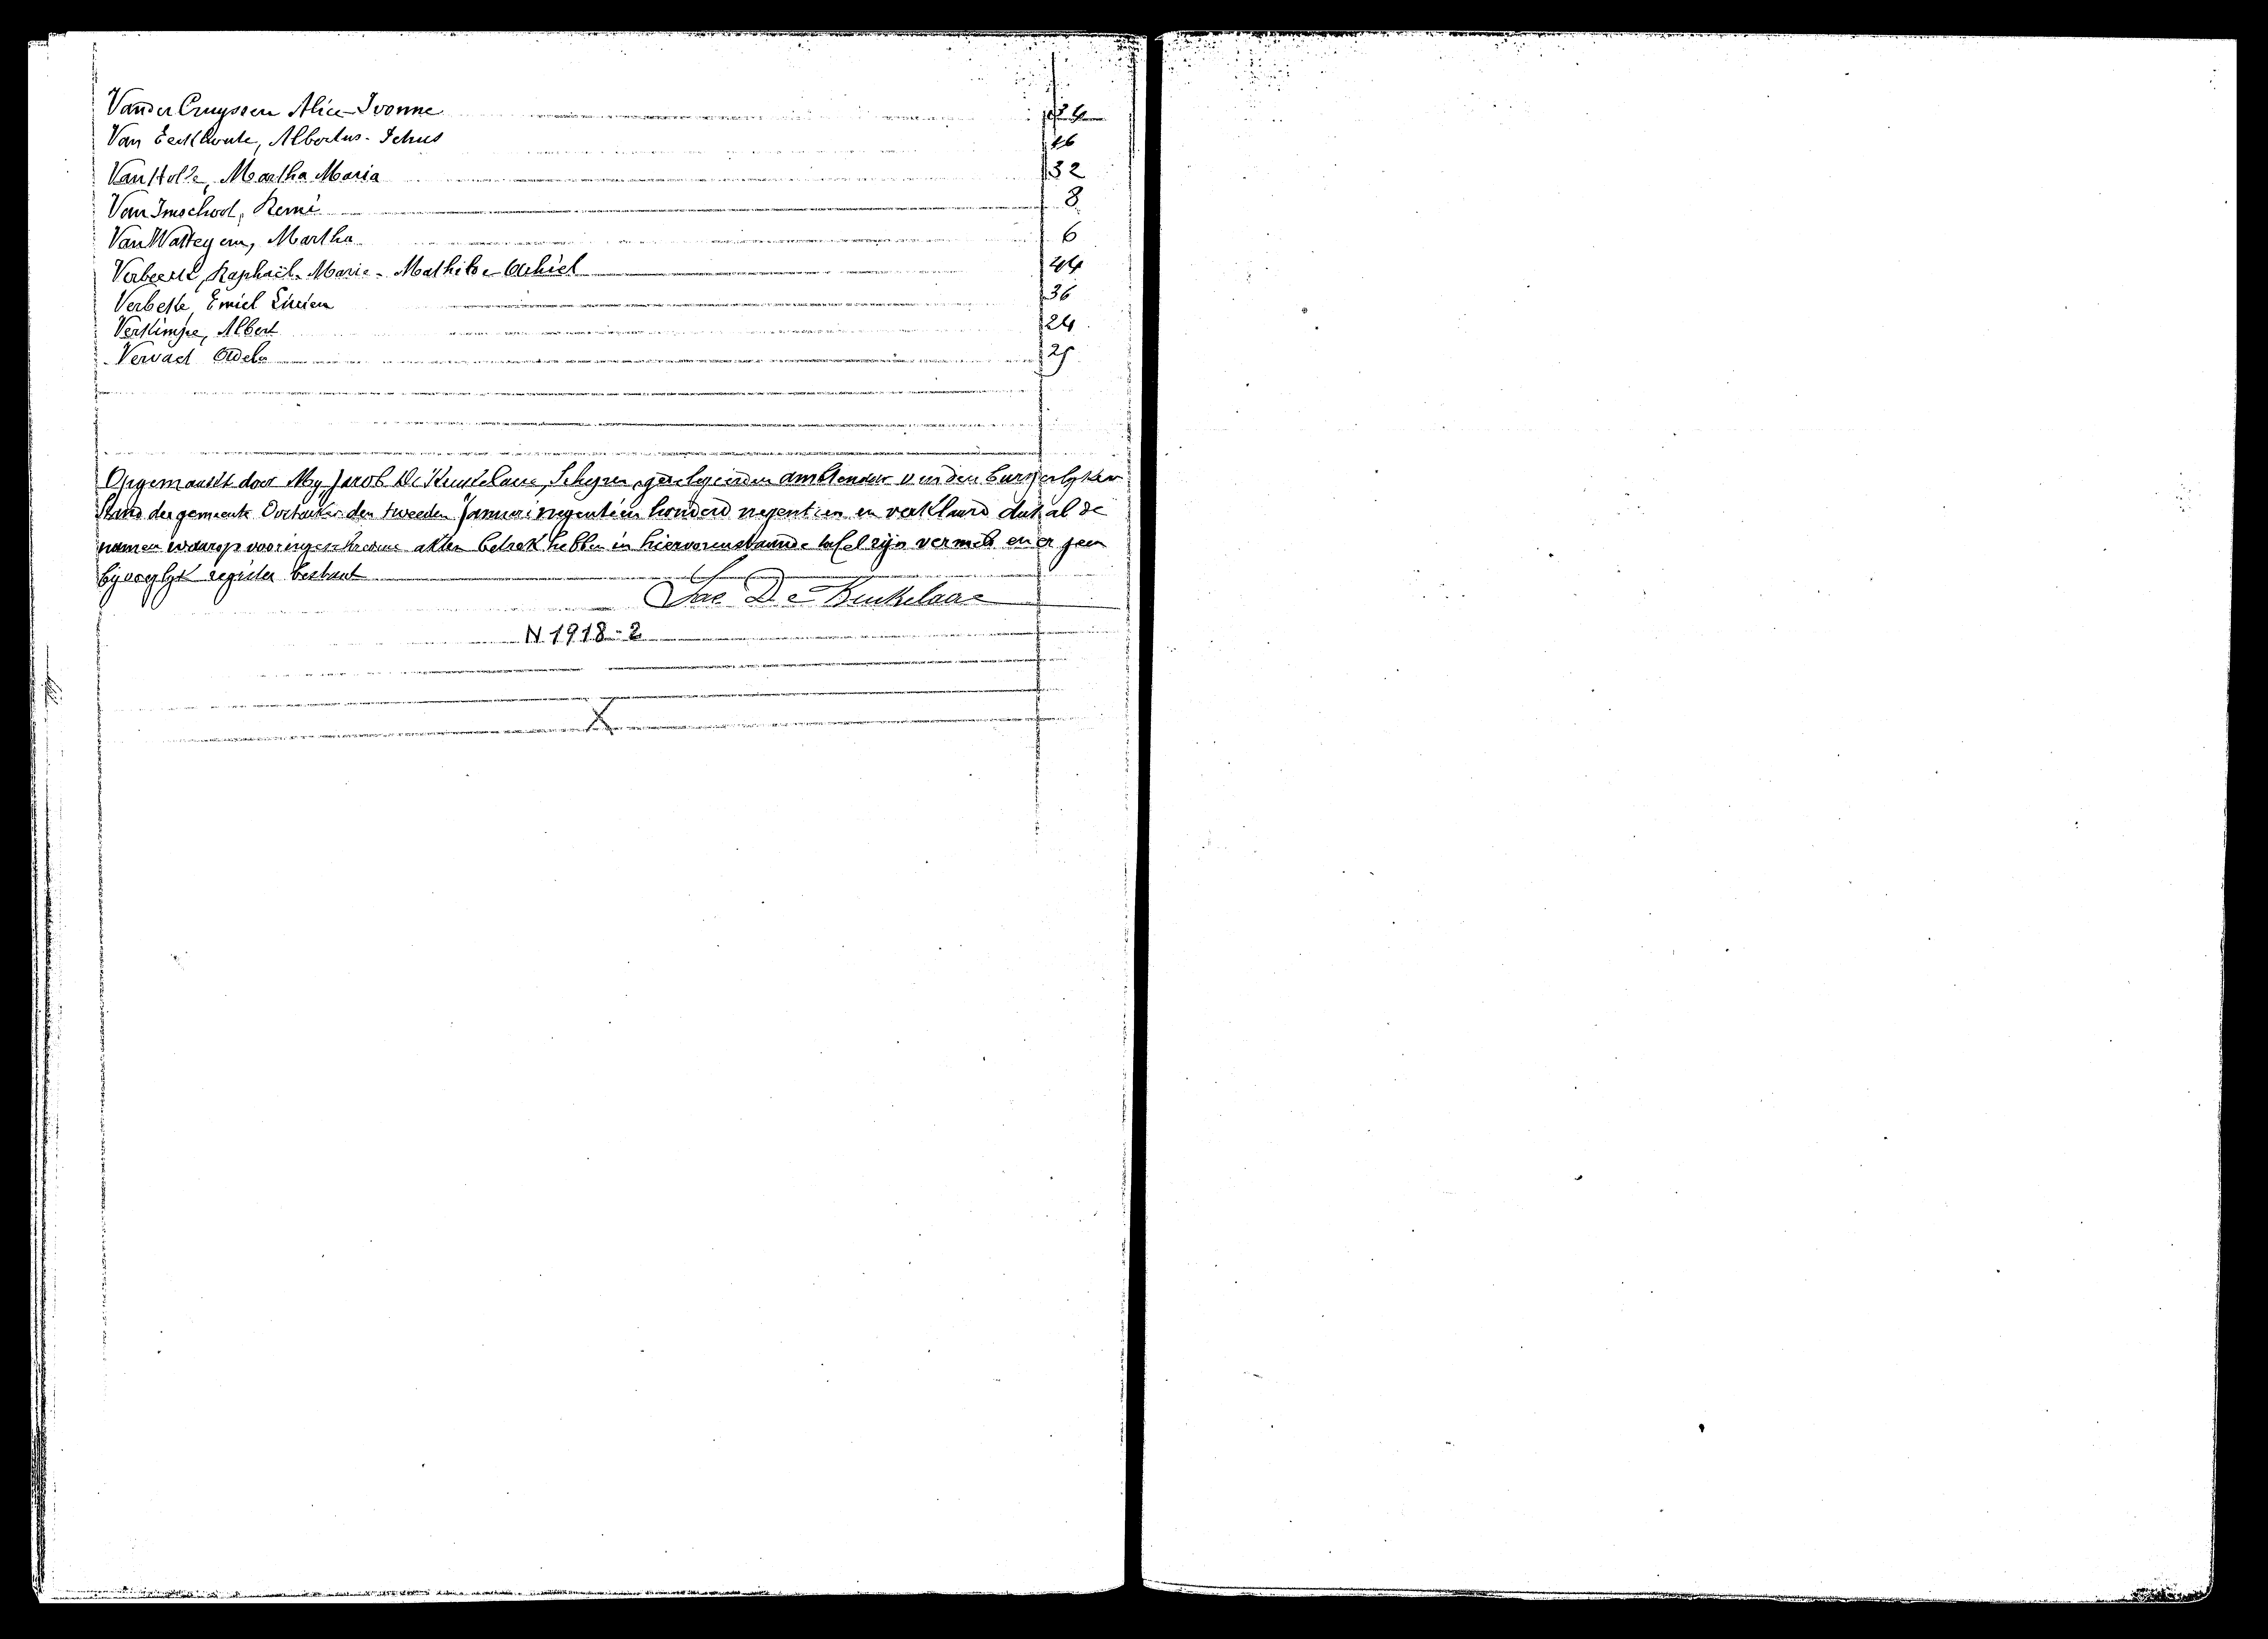 Vander Cruyssen Alice-Ivonne 34
Van Eeckhoute, Albertus- 46
Van Holle, Martha Maria 32
Van Imschoot, Remi 8
Van Watteyem, Martha 6
Verbeeck, Raphaël-Marie-Mathilde-Achiel 44
Verbeke, Emiel Lucien 36
Verkimpe, Albert 24
Vervaet Odela 25
Opgemaakt door My, Jacob De Keukelaere, Schepen, gedelegeerden ambtenaar van den burgerlyken
Stand der gemeente Oostacker den tweeden Januari negentien honderd negentien en verklaard dat al de
namen waarop vooringeschrevene akten betrek hebben in hiervorenstaande tafel zijn vermeld en er geen
bijvoeglyk register bestaat
Jac De Keukelaere
N 1918-2